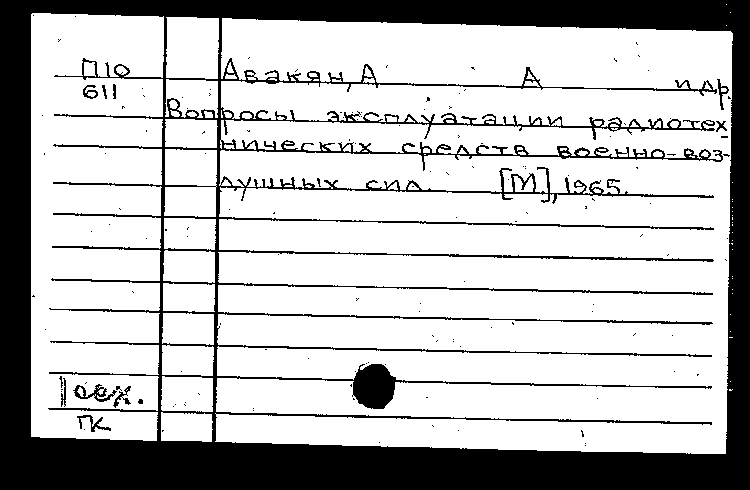 П10 Авакян, А А и др.
611
Вопросы эксплуатации радиотех-
нических средств военно-воз-
душных сил. [М], 1965.
1 оех.
ГК